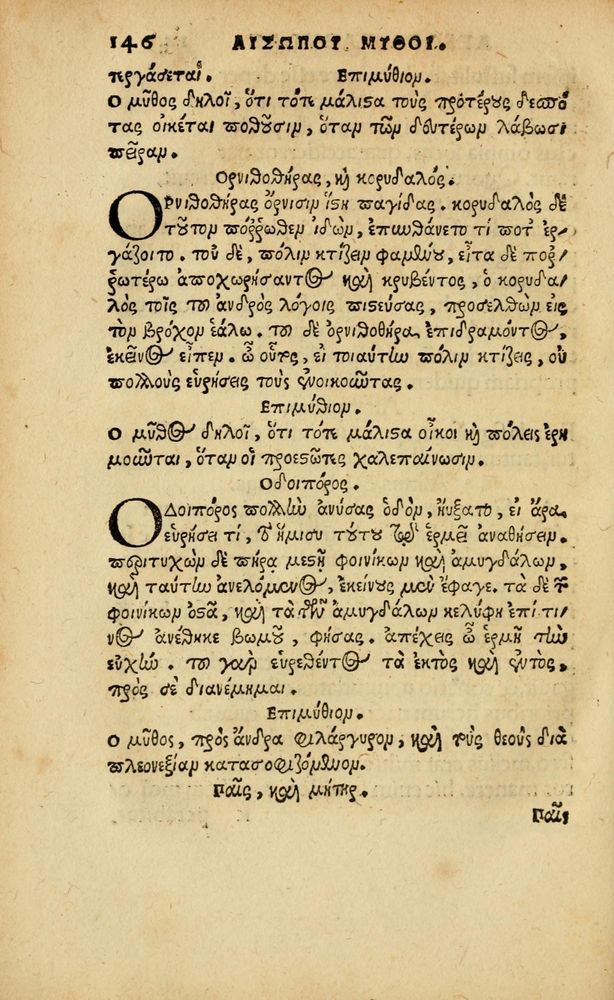 146 ΑΙΣΩΠΟΥ ΜΥΘΟΙ.
περγάσεται. Επιμύθιον.
Ο μῦθος δηλοῖ, ὅτι τότε μάλιστα τοὺς προτέρους δεσπό
τας οἰκέται ποθοῦσιν, ὅταν τῶν δευτέρων λάβωσι
πεῖραν.
Ορνιθοθήρας, καὶ κορυδαλός.
Ορνιθοθήρας ὄρνισιν ἵστη παγίδας. κορυδαλὸς δὲ
τοῦτον πόῤῥωθεν ἰδὼν, ἐπυνθάνετο τί ποτ᾽ ἐρ-
γάζοιτο. τοῦ δὲ, πόλιν κτίζειν φαμένου, εἶτα δὲ ποῤ-
ῥωτέρω ἀποχωρήσαντος καὶ κρυβέντος, ὁ κορυδα-
λὸς τοῖς τοῦ ἀνδρὸς λόγοις πιστεύσας, προσελθὼν εἰς
τὸν βρόχον ἑάλω. τοῦ δὲ ὀρνιθοθήρα ἐπιδραμόντος,
ἐκεῖνος εἶπεν. ὦ οὗτος, εἰ τοιαύτην πόλιν κτίζεις, οὐ
πολλοὺς εὑρήσεις τοὺς ἐνοικοῦντας.
Επιμύθιον.
Ο μῦθος δηλοῖ, ὅτι τότε μάλιστα οἶκοι καὶ πόλεις ἐρη
μοῦνται, ὅταν οἱ προεστῶτες χαλεπαίνωσιν.
Οδοιπόρος.
Οδοιπόρος πολλὴν ἀνύσας ὁδὸν, ηὔξατο, εἰ ἄρα
εὑρήσει τί, τὸ ἥμισυ τούτου τῷ ἑρμῇ ἀναθήσειν.
περιτυχὼν δὲ πήρᾳ μεστῇ φοινίκων καὶ ἀμυγδάλων,
καὶ ταύτην ἀνελόμενος, ἐκείνους μὲν ἔφαγε. τὰ δὲ τῶν
φοινίκων ὀστᾶ, καὶ τὰ τῶν ἀμυγδάλων κελύφη ἐπί τι-
νος ἀνέθηκε βωμοῦ, φήσας. ἀπέχεις ὦ ἑρμῆ τὴν
εὐχήν. τοῦ γὰρ εὑρεθέντος τὰ ἐκτὸς καὶ ἐντὸς,
πρὸς σὲ διανέμημαι.
Επιμύθιον.
Ο μῦθος, πρὸς ἄνδρα φιλάργυρον, καὶ τοὺς θεοὺς διὰ
πλεονεξίαν κατασοφιζόμενον.
Παῖς, καὶ μήτηρ.
Παῖς